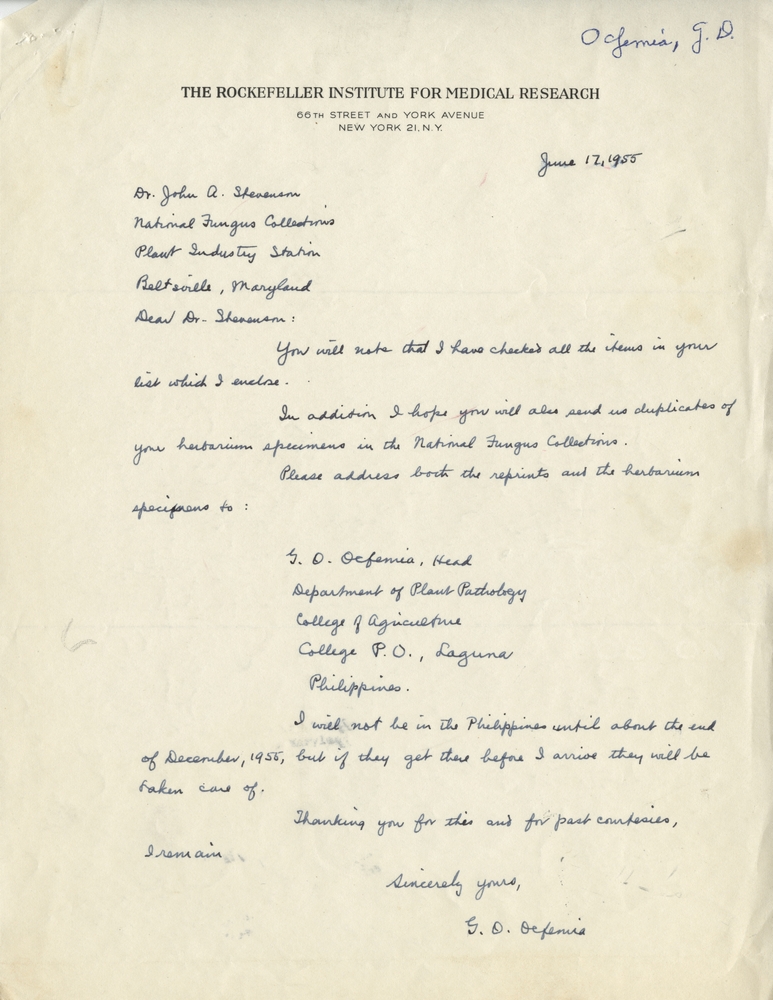 Ocfemia, G. D.
THE ROCKEFELLER INSTITUTE FOR MEDICAL RESEARCH
66TH STREET AND YORK AVENUE
NEW YORK 21, N.Y.
June 17, 1955
Dr. John A. Stevenson
National Fungus Collections
Plant Industry Station
Beltsville, Maryland
Dear Dr. Stevenson:
You will note that I have checked all the items in your
list which I enclose.
In addition I hope you will also send us duplicates of
your herbarium specimens in the National Fungus Collections.
Please address both the reprints and the herbarium
specimens to:
G. O. Ocfemia, Head
Department of Plant Pathology
College of Agriculture
College P.O., Laguna
Philippines.
I will not be in the Philippines until about the end
of December, 1955, but if they get there before I arrive they will be
taken care of.
Thanking you for this and for past courtesies,
I remain
Sincerely yours,
G. O. Ocfemia